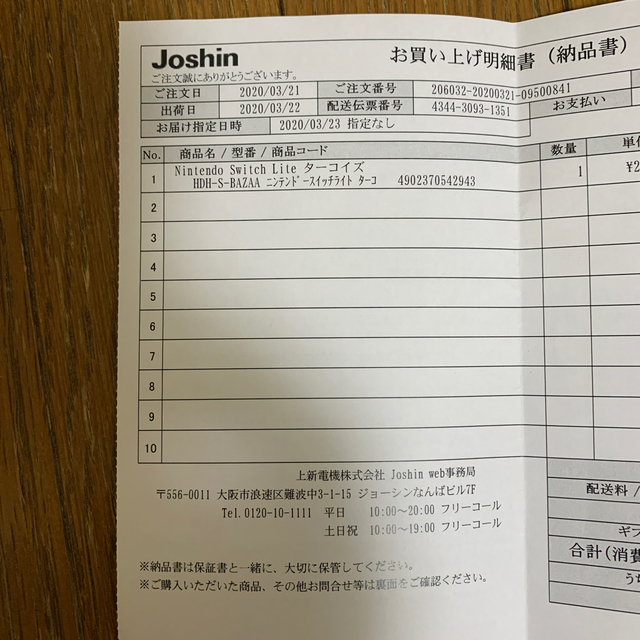 Joshin
お買い上げ明細書（納品書）
ご注文誠にありがとうございます。
ご注文日 2020/03/21 ご注文番号 206032-20200321-09500841
出荷日 2020/03/22 配送伝票番号 4344-3093-1351 お支払い
お届け指定日時 2020/03/23 指定なし
No. 商品名 / 型番 / 商品コード 数量 単
1 Nintendo Switch Lite ターコイズ 1 ¥2
HDH-S-BAZAA ニンテンドースイッチライト ターコ 4902370542943
2
3
4
5
6
7
8
9
10
上新電機株式会社 Joshin web事務局
〒556-0011 大阪市浪速区難波中3-1-15 ジョーシンなんばビル7F
Tel.0120-10-1111 平日 10:00~20:00 フリーコール
土日祝 10:00~19:00 フリーコール
配送料 /
ギフ
合計(消費
うち
※納品書は保証書と一緒に、大切に保管してください。
※ご購入いただいた商品、その他お問合せ等は裏面をご確認ください。